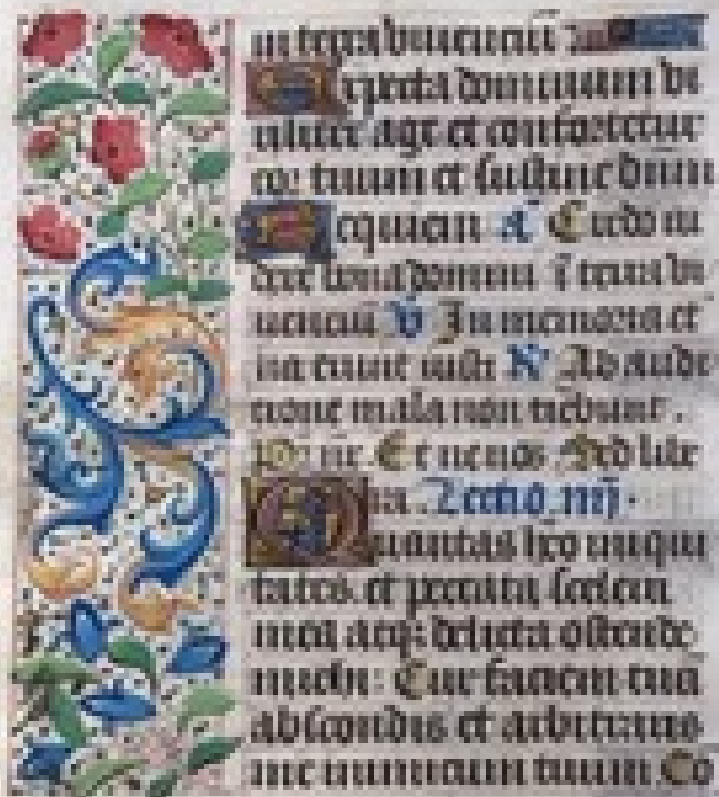 in terra viuenciū
Expecta dominum vi
riliter age et confortetur
cor tuum et sustine dnm
Requiem a Credo vi
dere bona domini ī terra vi
uenciū V In memoria et
na erunt iusti R Ab audi
tione mala non timebunt.
Pr nr Et ne nos Sed libe
ra. Lectio iiij.
Quantas heo iniqui
tates et peccata scelera
mea atqz delicta ostende
michi: Cur faciem tuā
abscondis et arbitraris
me inimicum tuum Co